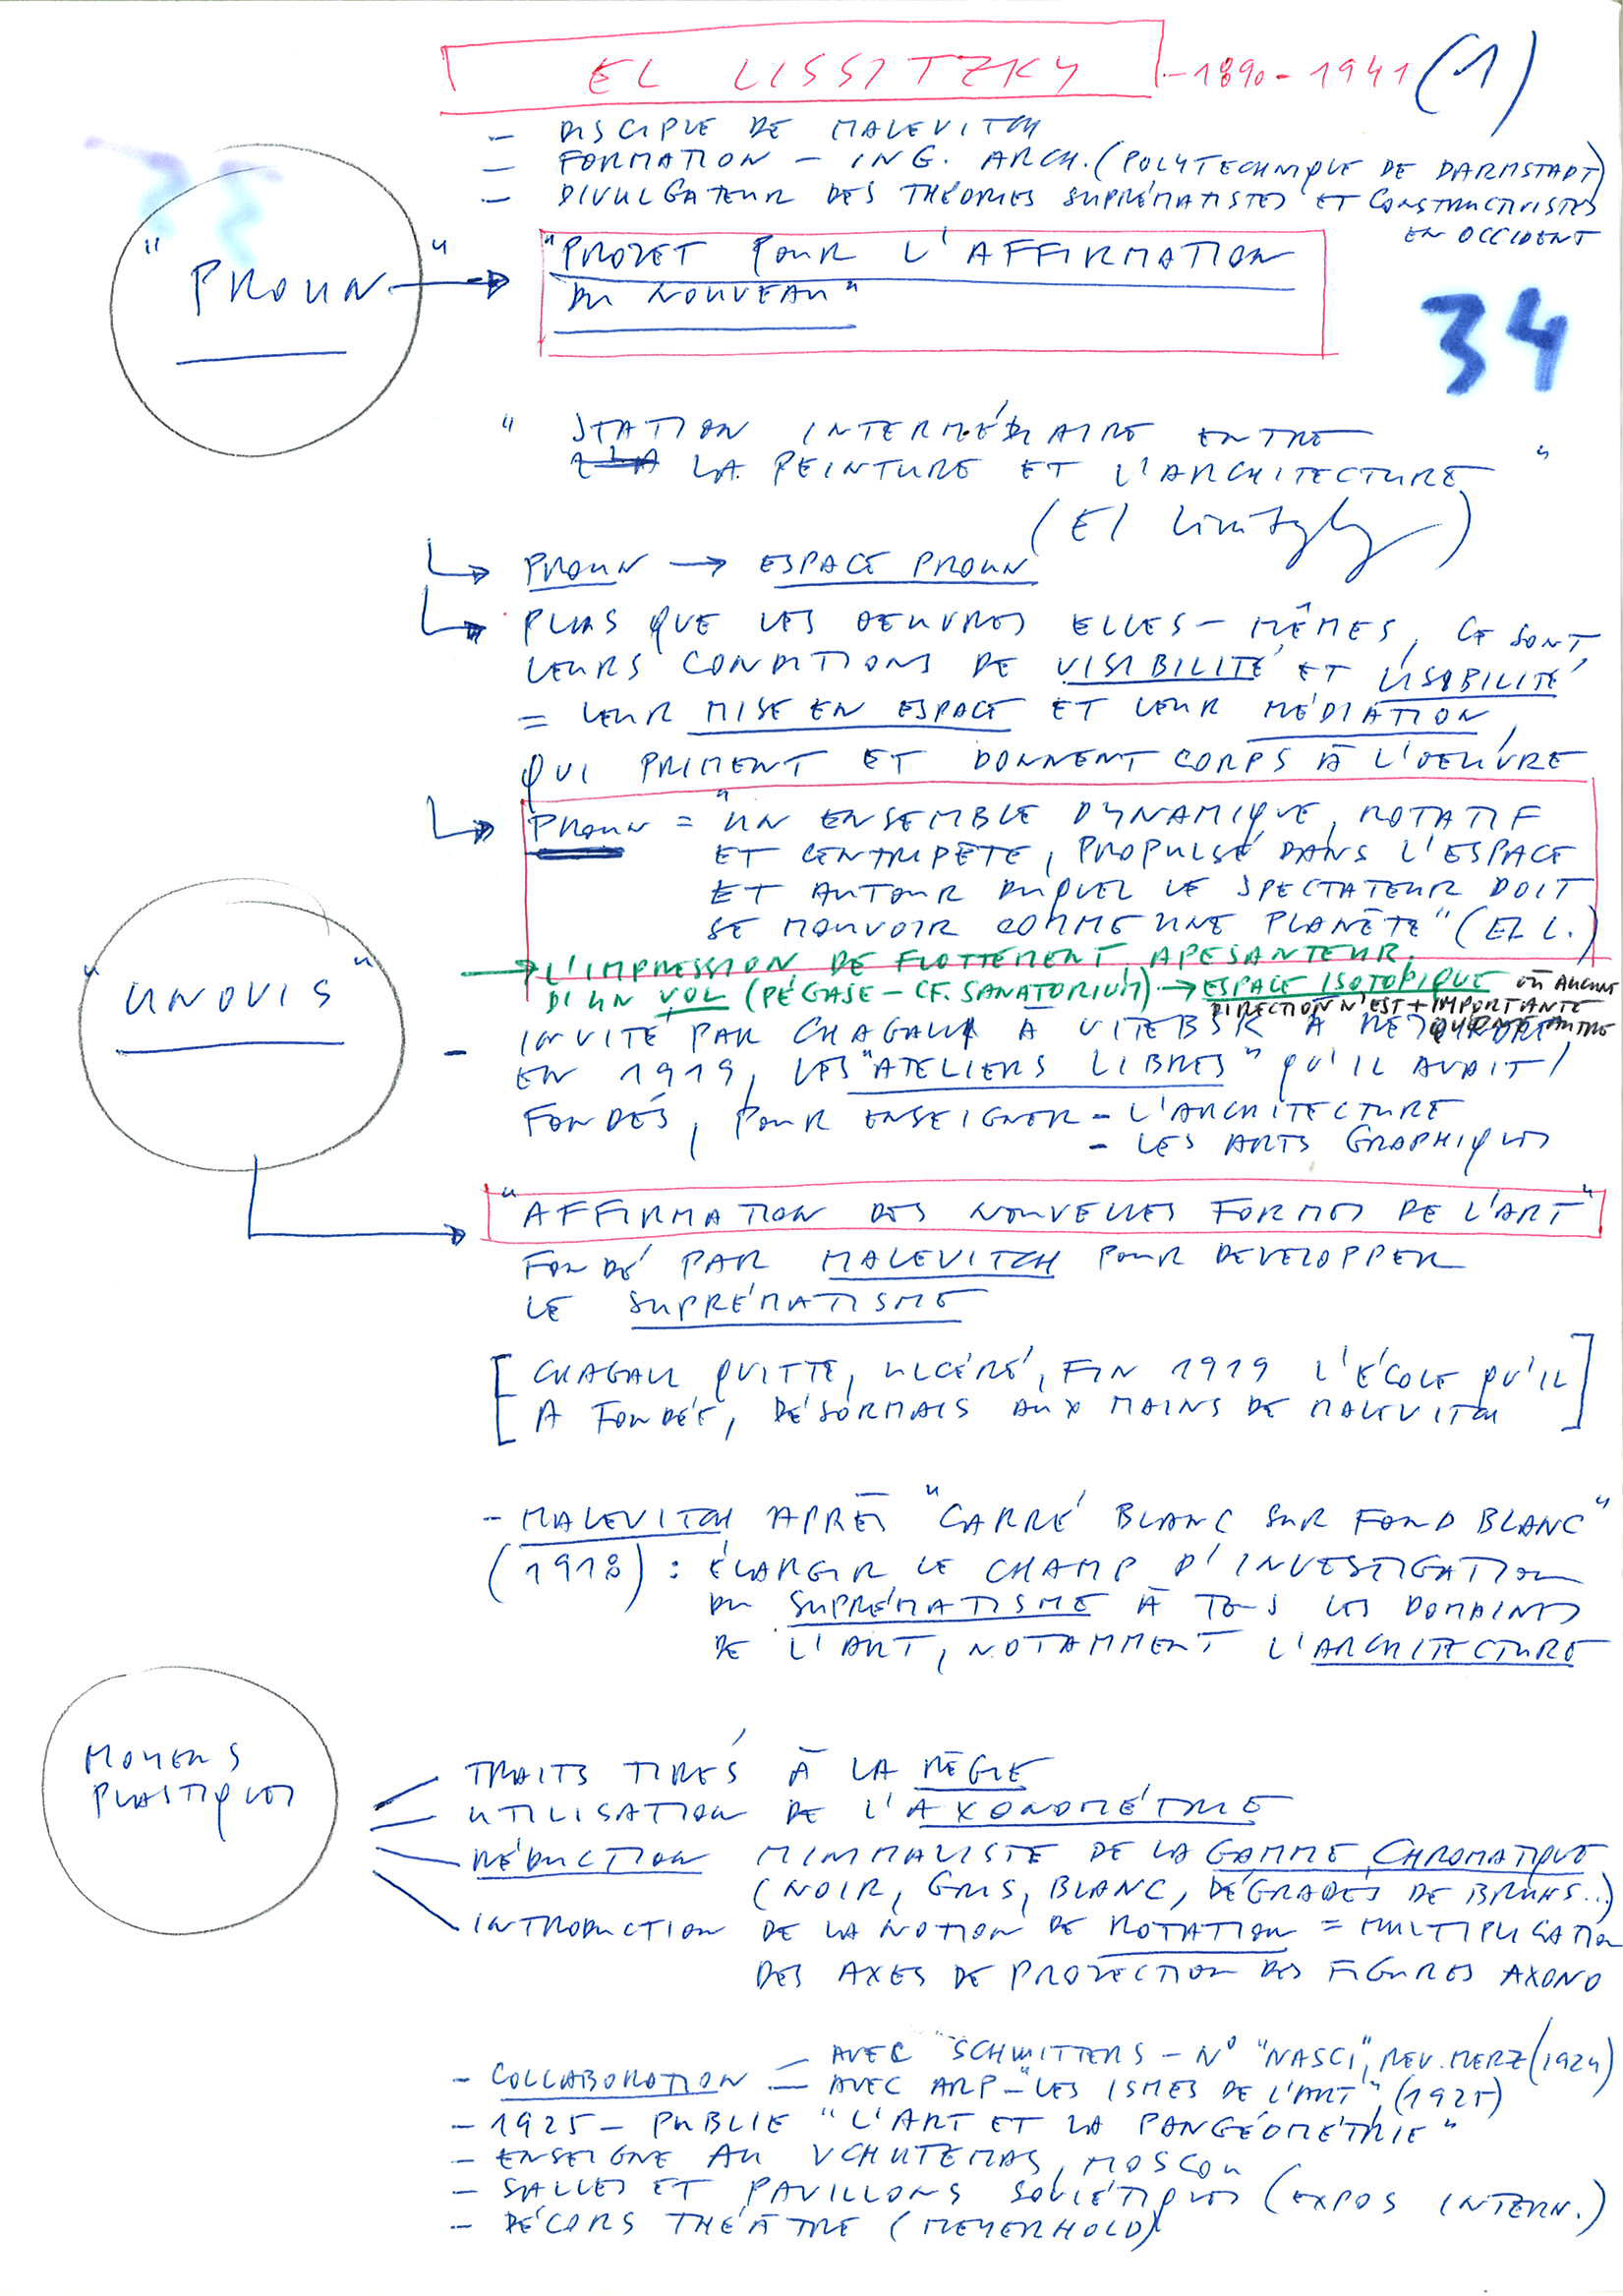 EL LISSITZKY -1890-1941 (1)
- DISCIPLE DE MALEVITCH
- FORMATION - ING. ARCH. (POLYTECHNIQUE DE DARMSTADT)
- DIVULGATEUR DES THÉORIES SUPRÉMATISTES ET CONSTRUCTIVISTES
EN OCCIDENT
"PROUN" → "PROJET POUR L'AFFIRMATION
DU NOUVEAU"
34
" STATION INTERMÉDIAIRE ENTRE
LA PEINTURE ET L'ARCHITECTURE "
(El Lissitzky)
↳ PROUN → ESPACE PROUN
↳ PLUS QUE LES OEUVRES ELLES-MÊMES, CE SONT
LEURS CONDITIONS DE VISIBILITÉ ET LISIBILITÉ
= LEUR MISE EN ESPACE ET LEUR MÉDIATION,
QUI PRIMENT ET DONNENT CORPS À L'OEUVRE
↳ PROUN = "UN ENSEMBLE DYNAMIQUE, ROTATIF
ET CENTRIPÈTE, PROPULSÉ DANS L'ESPACE
ET AUTOUR DUQUEL LE SPECTATEUR DOIT
SE MOUVOIR COMME UNE PLANÈTE" (EL L.)
→ L'IMPRESSION DE FLOTTEMENT, APESANTEUR,
D'UN VOL (PÉGASE - CF. SANATORIUM) → ESPACE ISOTOPIQUE OÙ AUCUNE
DIRECTION N'EST + IMPORTANTE
QU'UNE AUTRE
"UNOVIS"
- INVITÉ PAR CHAGALL À VITEBSK À
EN 1919, LES "ATELIERS LIBRES" QU'IL AVAIT
FONDÉS, POUR ENSEIGNER - L'ARCHITECTURE
- LES ARTS GRAPHIQUES
"AFFIRMATION DES NOUVELLES FORMES DE L'ART"
FONDÉ PAR MALEVITCH POUR DEVELOPPER
LE SUPRÉMATISME
[CHAGALL QUITTE, ULCÉRÉ, FIN 1919 L'ÉCOLE QU'IL
A FONDÉE, DÉSORMAIS AUX MAINS DE MALEVITCH]
- MALEVITCH APRÈS "CARRÉ BLANC SUR FOND BLANC"
(1918) : ÉLARGIR LE CHAMP D'INVESTIGATION
DU SUPRÉMATISME À TOUS LES DOMAINES
DE L'ART, NOTAMMENT L'ARCHITECTURE
MOYENS
PLASTIQUES
TRAITS TIRÉS À LA RÈGLE
UTILISATION DE L'AXONOMÉTRIE
RÉDUCTION MINIMALISTE DE LA GAMME CHROMATIQUE
(NOIR, GRIS, BLANC, DÉGRADÉS DE BRUNS...)
INTRODUCTION DE LA NOTION DE ROTATION = MULTIPLICATION
DES AXES DE PROJECTION DES FIGURES AXONO
- COLLABORATION - AVEC SCHWITTERS - N° "NASCI", REV. MERZ (1924)
- AVEC ARP - "LES ISMES DE L'ART", (1925)
- 1925 - PUBLIE "L'ART ET LA PANGÉOMÉTRIE"
- ENSEIGNE AU VCHUTEMAS, MOSCOU
- SALLES ET PAVILLONS SOVIÉTIQUES (EXPOS INTERN.)
- DÉCORS THÉÂTRE (MEYERHOLD)